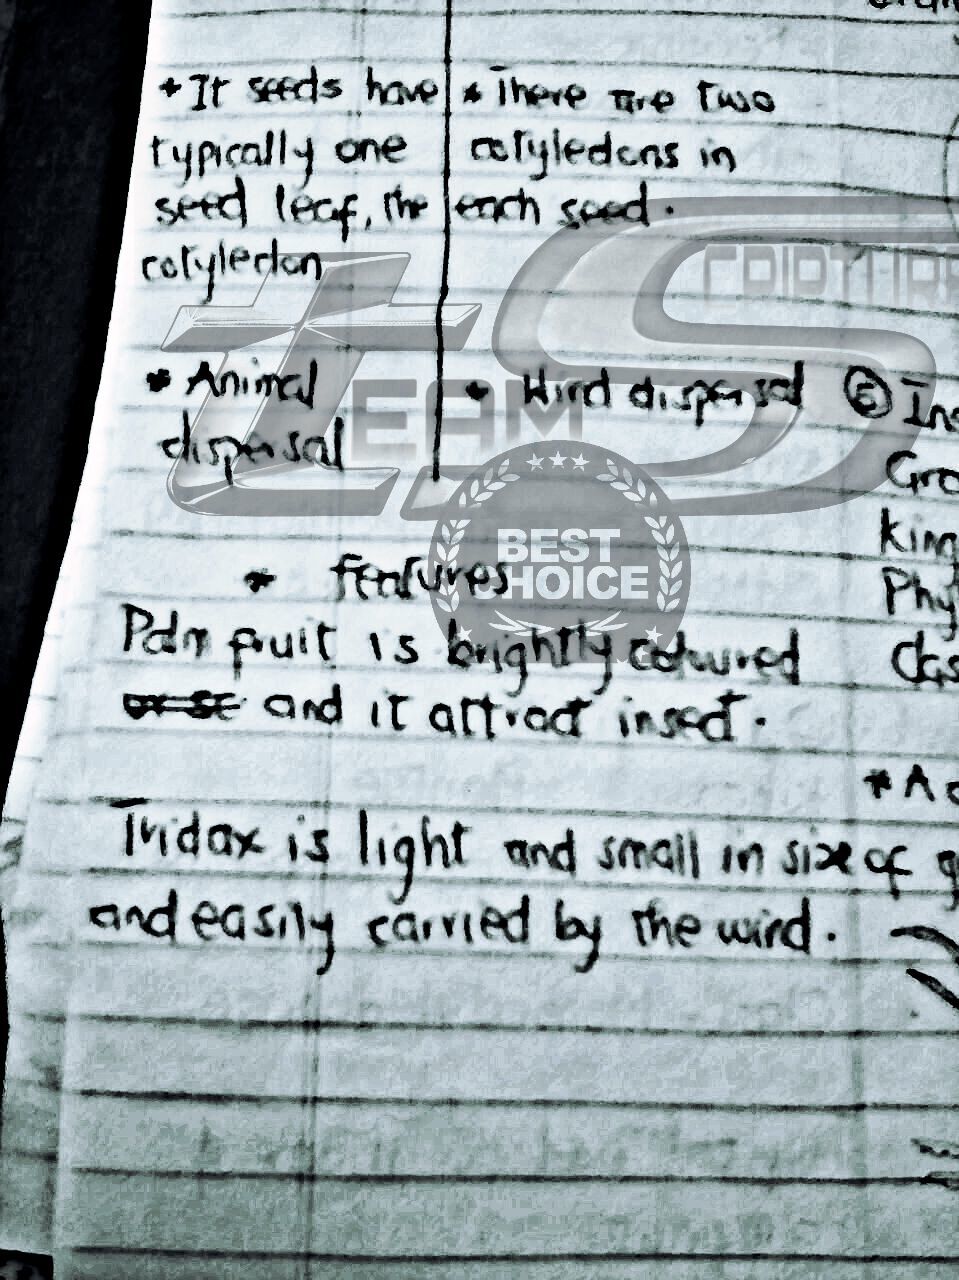 * It seeds have
typically one
seed leaf, the
cotyledon
* There are two
cotyledons in
each seed.
* Animal
dispersal
* Wind dispersal
* features
Palm fruit is brightly coloured
and it attract insect.
Tridax is light and small in size of
and easily carried by the wind.
TEAM
BEST
CHOICE